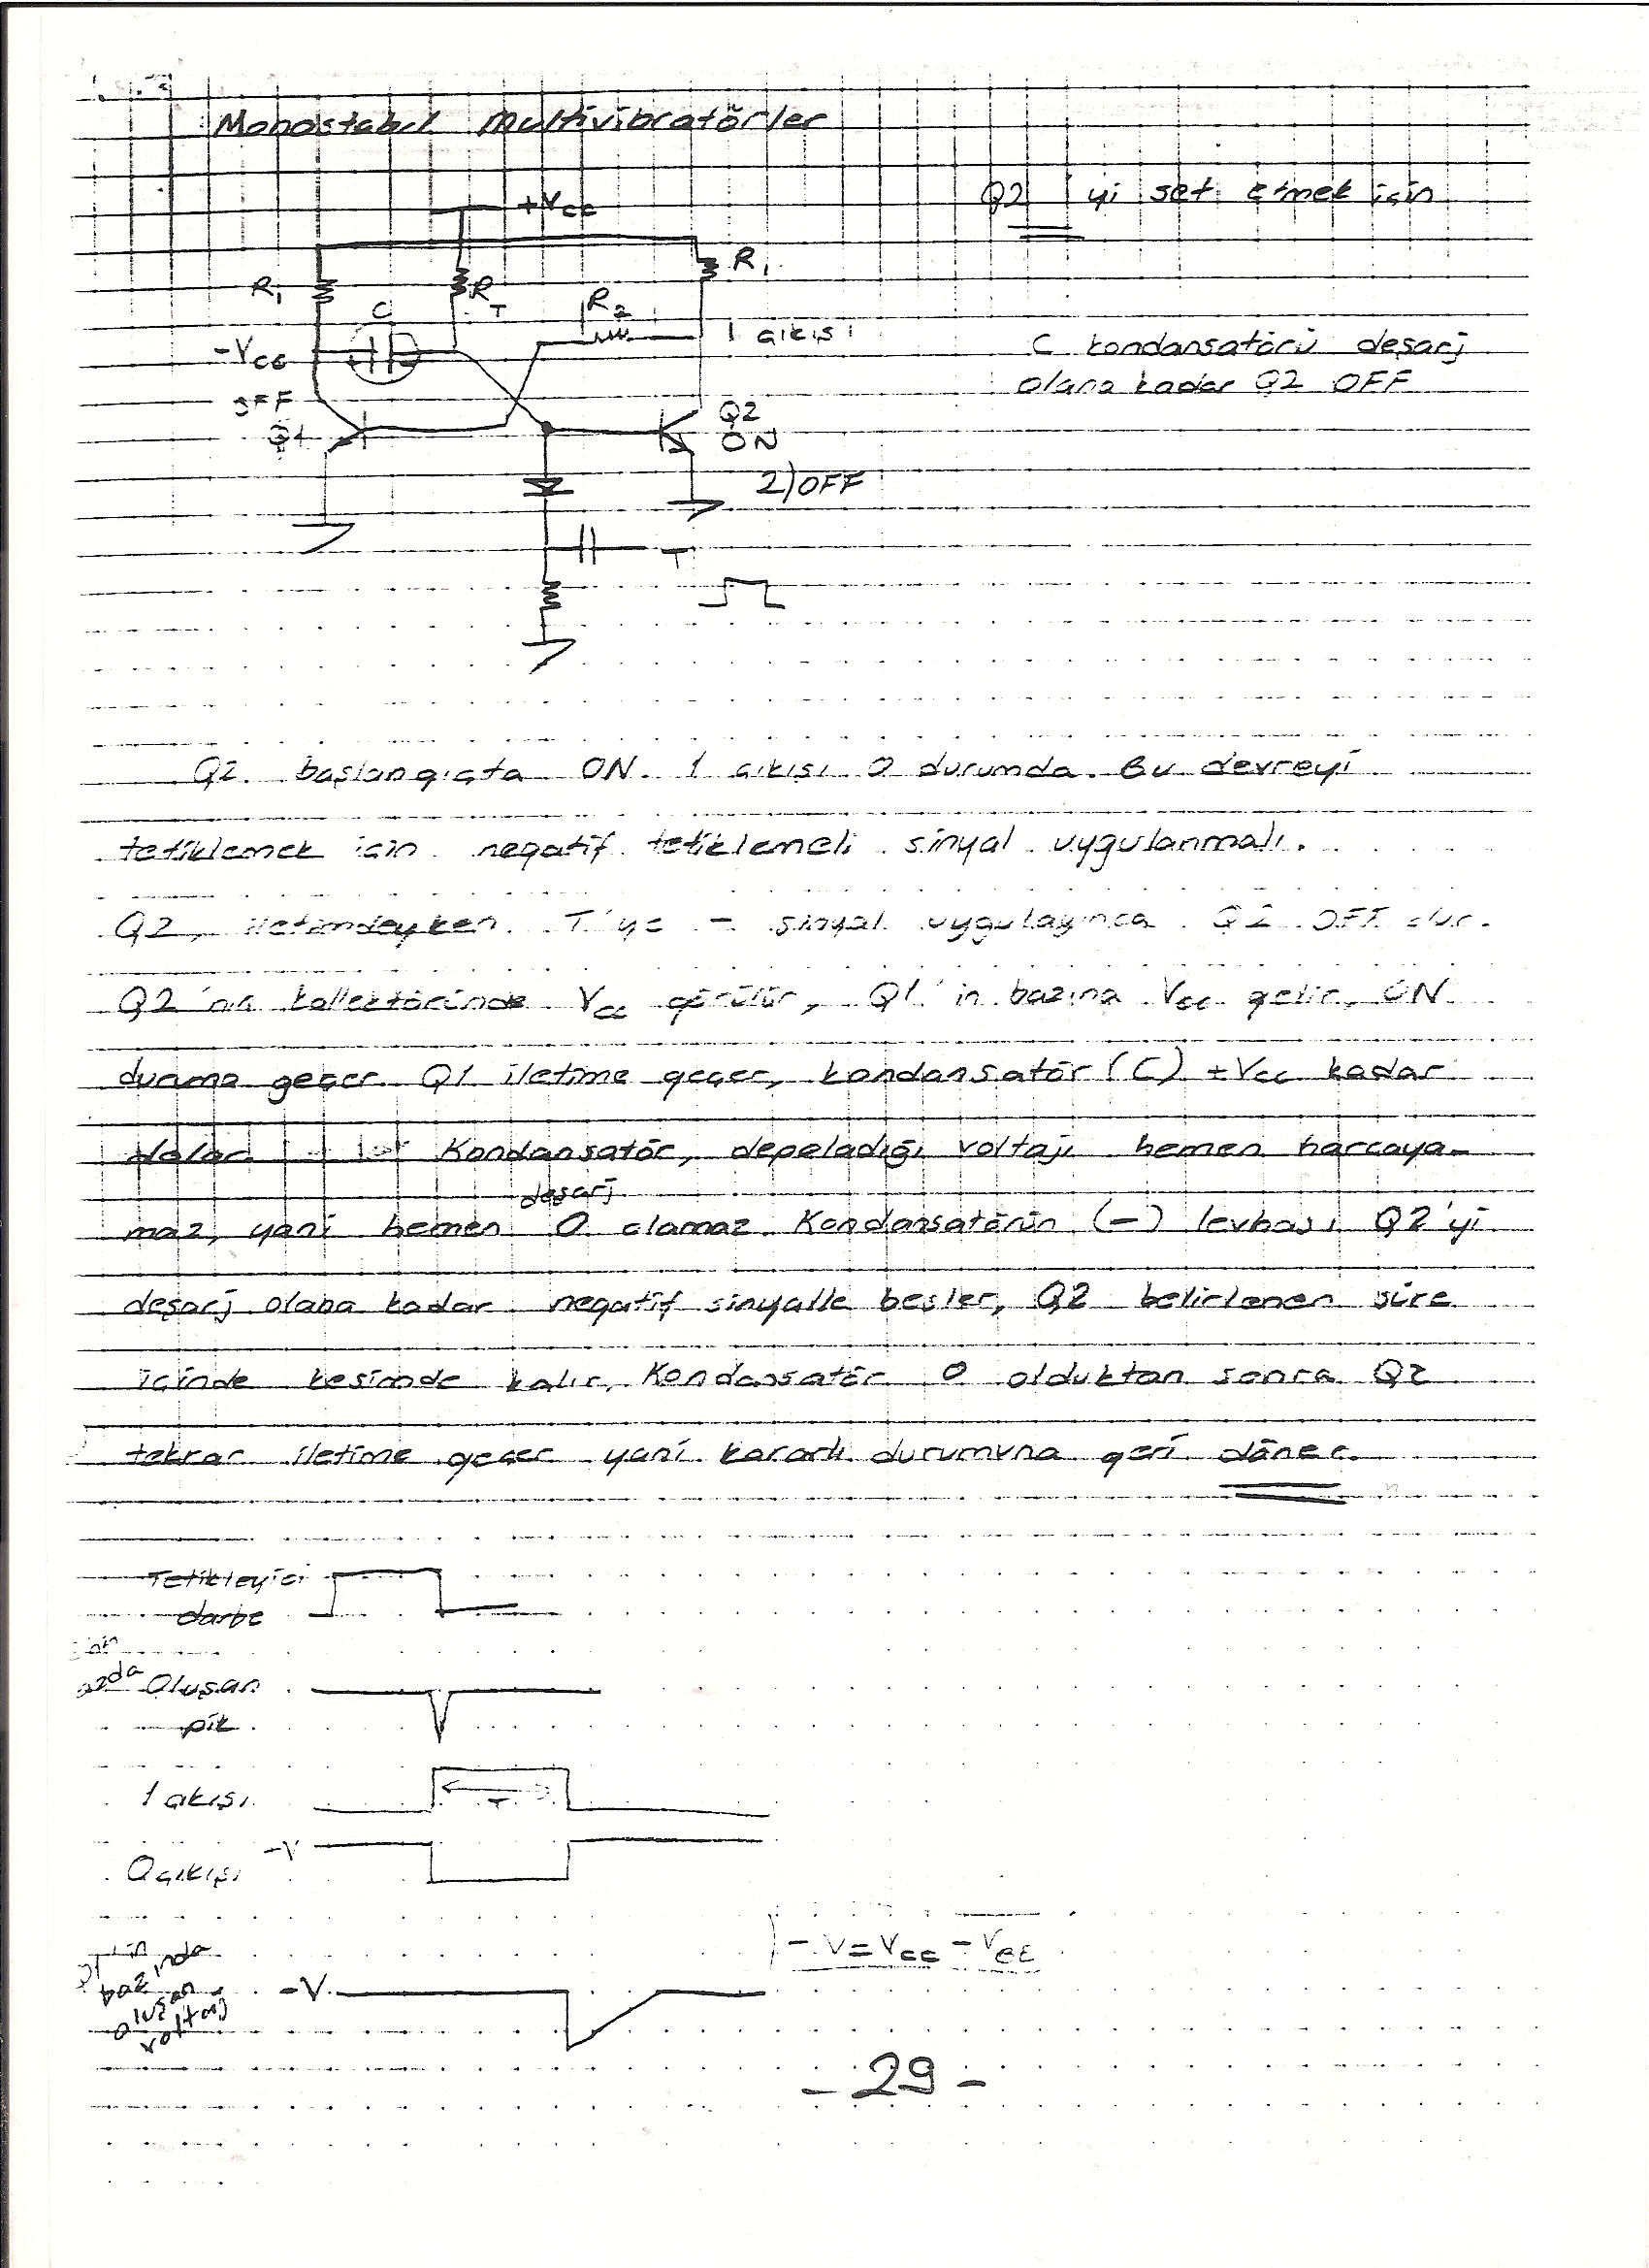 Monostabil Multivibratörler
Q2 'yi set etmek için
+Vcc
R1
RT
R1
C
R2
1 çıkışı
-Vcc
C kondansatörü deşarj
olana kadar Q2 OFF
OFF
Q1
Q2
ON
2) OFF
T
Q2 başlangıçta ON. 1 çıkışı 0 durumda. Bu devreyi
tetiklemek için negatif tetiklemeli sinyal uygulanmalı.
Q2, iletimdeyken T'ye - sinyal uygulayınca Q2 OFF olur.
Q2'nin kollektöründe Vcc görülür, Q1'in bazına Vcc gelir, ON
duruma geçer. Q1 iletime geçer, kondansatör (C) +Vcc kadar
dolar. Kondansatör, depoladığı voltajı hemen harcaya-
deşarj
maz, yani hemen 0 olamaz. Kondansatörün (-) levhası Q2'yi
deşarj olana kadar negatif sinyalle besler, Q2 belirlenen süre
içinde kesimde kalır. Kondansatör 0 olduktan sonra Q2
tekrar iletime geçer yani kararlı durumuna geri döner.
Tetikleyici
darbe
da Oluşan
pik
1 çıkışı
T
-V
0 çıkışı
-V = Vcc - VBE
bazında
-V
oluşan
voltaj
- 29 -